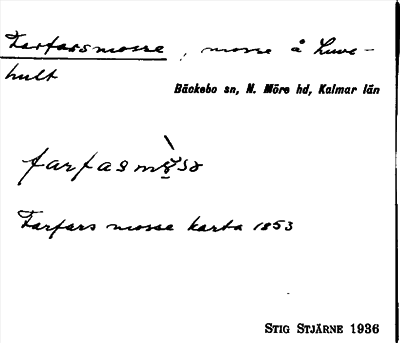 Farfarsmosse, mosse å Luve-
hult
Bäckebo sn, N. Möre hd, Kalmar län
Farfars mosse karta 1853
STIG STJÄRNE 1936